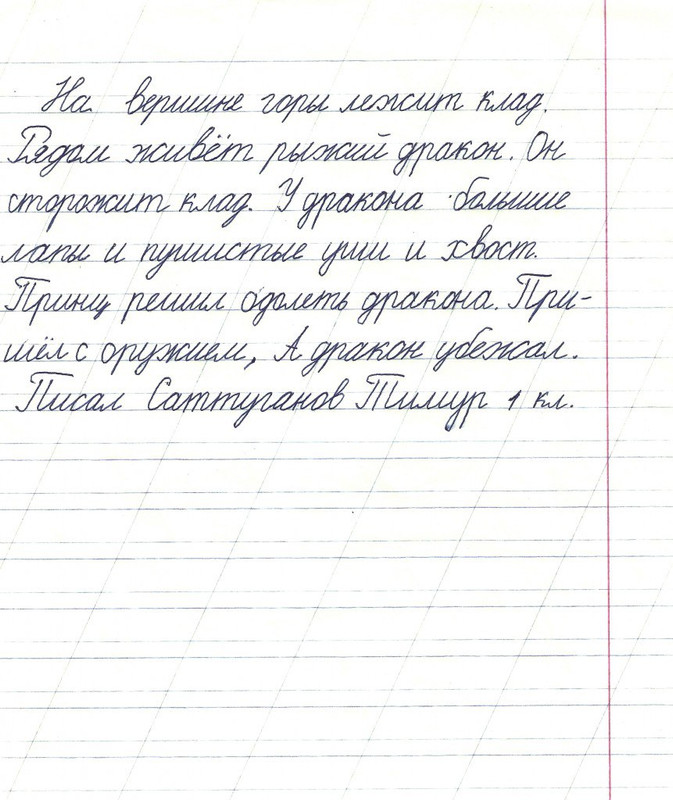 На вершине горы лежит клад.
Рядом живёт рыжий дракон. Он
сторожит клад. У дракона большие
лапы и пушистые уши и хвост.
Принц решил одолеть дракона. При-
шёл с оружием, А дракон убежал.
Писал Саттуганов Тимур 1 кл.